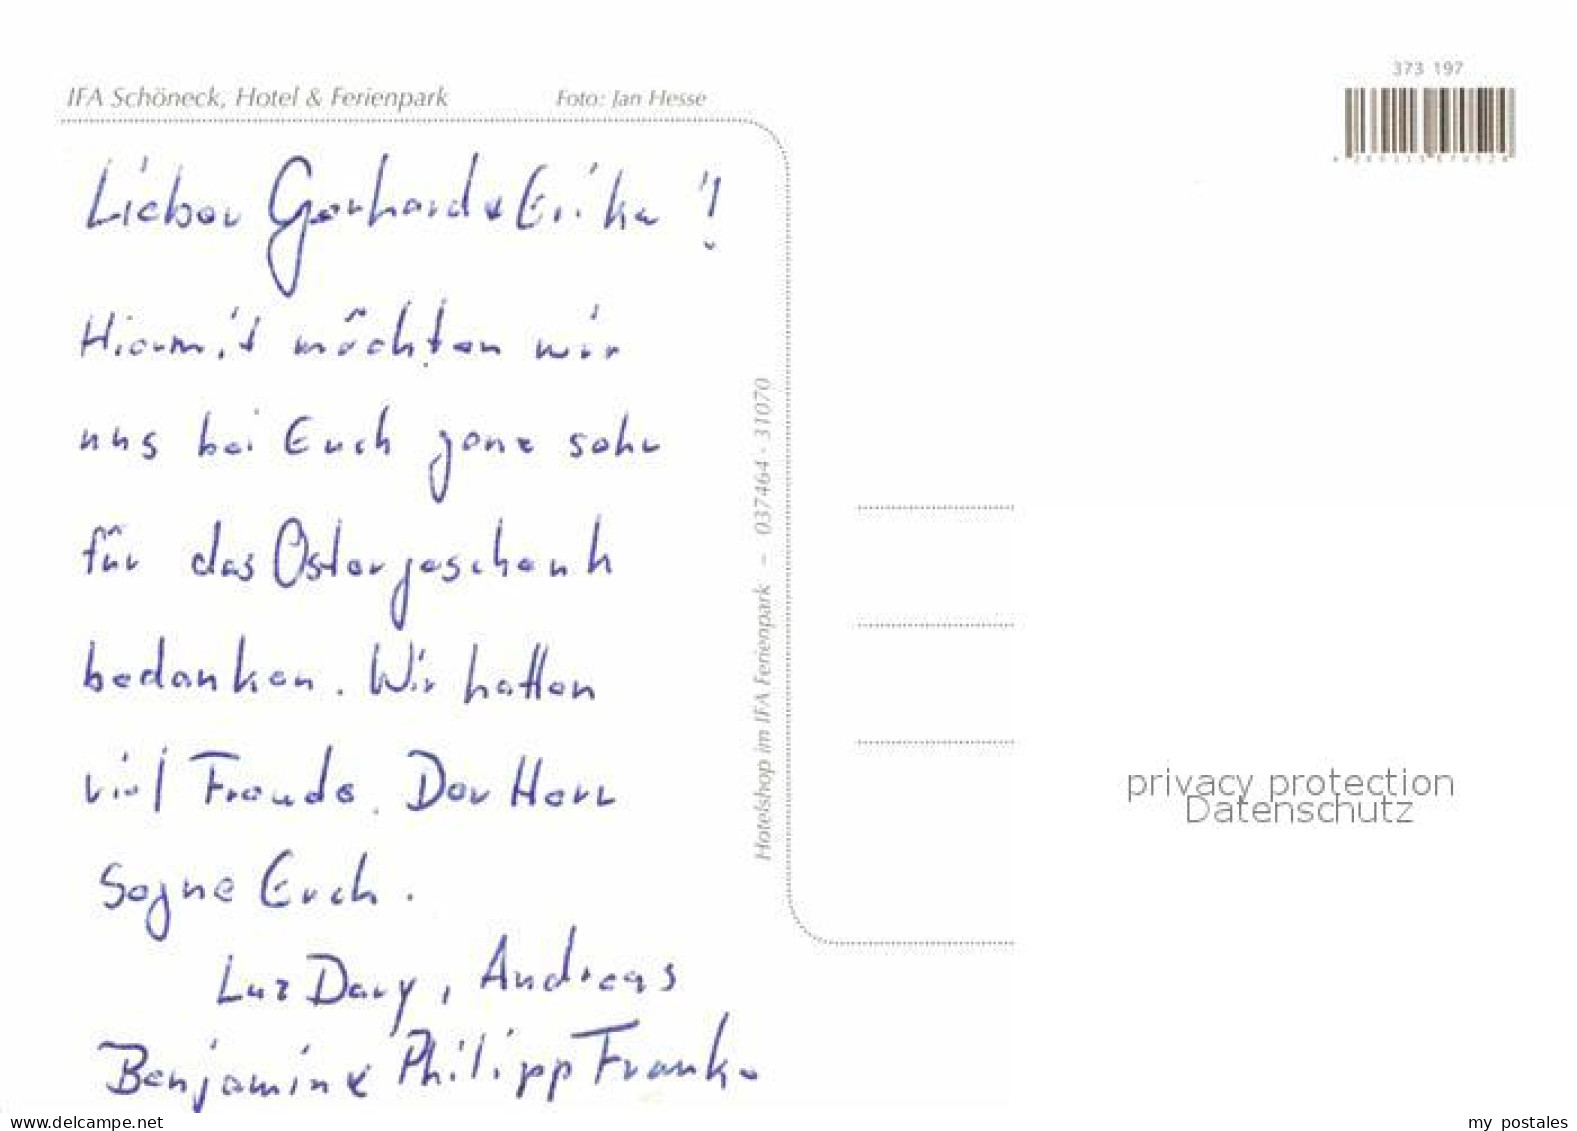 373 197
IFA Schöneck, Hotel & Ferienpark Foto: Jan Hesse
Lieber Gerhard & Erika !
Hiermit möchten wir
uns bei Euch ganz sehr
für das Ostergeschenk
bedanken. Wir hatten
viel Freude. Der Herr
Segne Euch.
Luz Dary, Andreas
Benjamin & Philipp Franke
Hotelshop im IFA Ferienpark – 037464 - 31070
privacy protection
Datenschutz
www.delcampe.net
my_postales